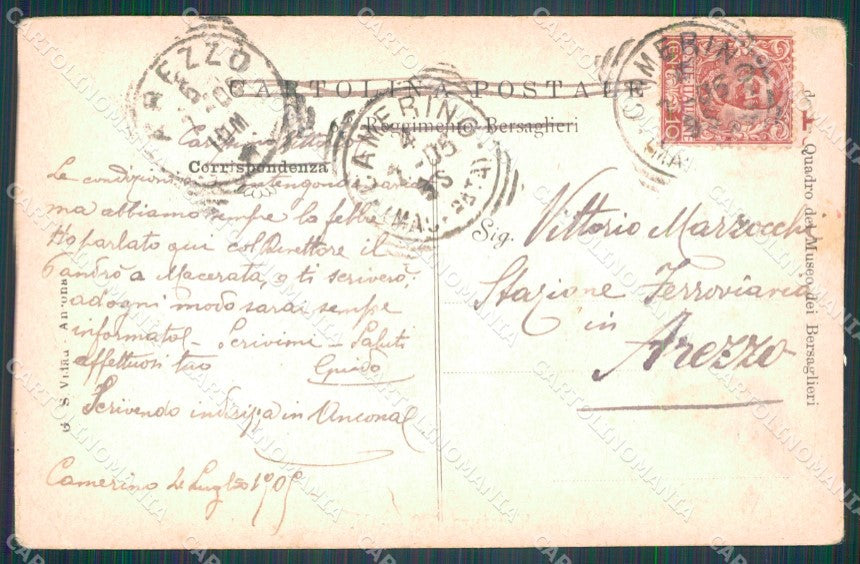 CARTOLINA POSTALE
Reggimento Bersaglieri
Corrispondenza
AREZZO
CAMERINO
(MACERATA)
CAMERINO
Le condizioni si mantengono
ma abbiamo sempre la febbre
Ho parlato qui col Direttore il
6 andrò a Macerata, e ti scriverò,
ad ogni modo sarai sempre
informato - Scrivimi - Saluti
affettuosi tuo Guido
Scrivendo indirizza in Ancona
Camerino Luglio 1905
Sig. Vittorio Marzocchi
Stazione Ferroviaria
in
Arezzo
Quadro del Museo dei Bersaglieri
Ancona
CARTOLINOMANIA